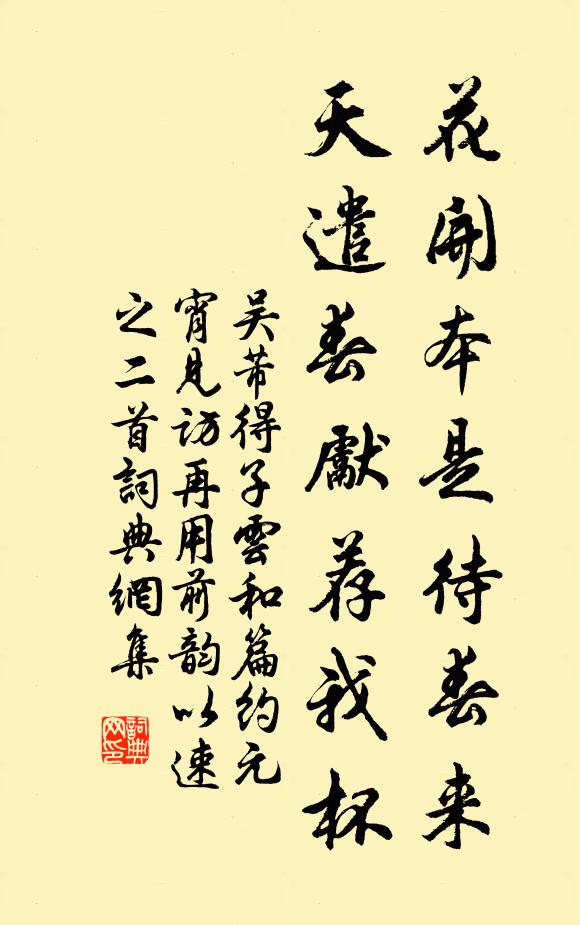 花開本是待春來
天遣春獻荐我杯
吴芾得子雲和篇約元
宵見訪再用前韵以速
之二首詞典網集
詞典網印